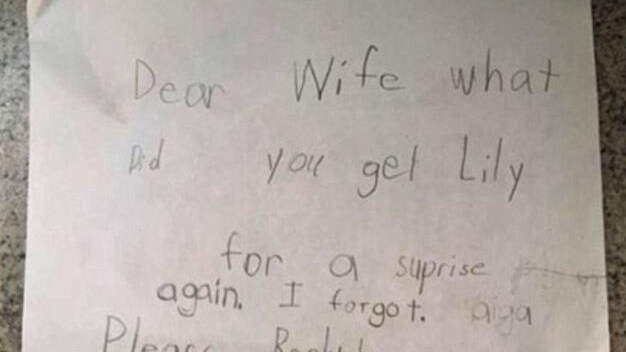 Dear Wife what
Did you get Lily
for a suprise
again. I forgot.
Please